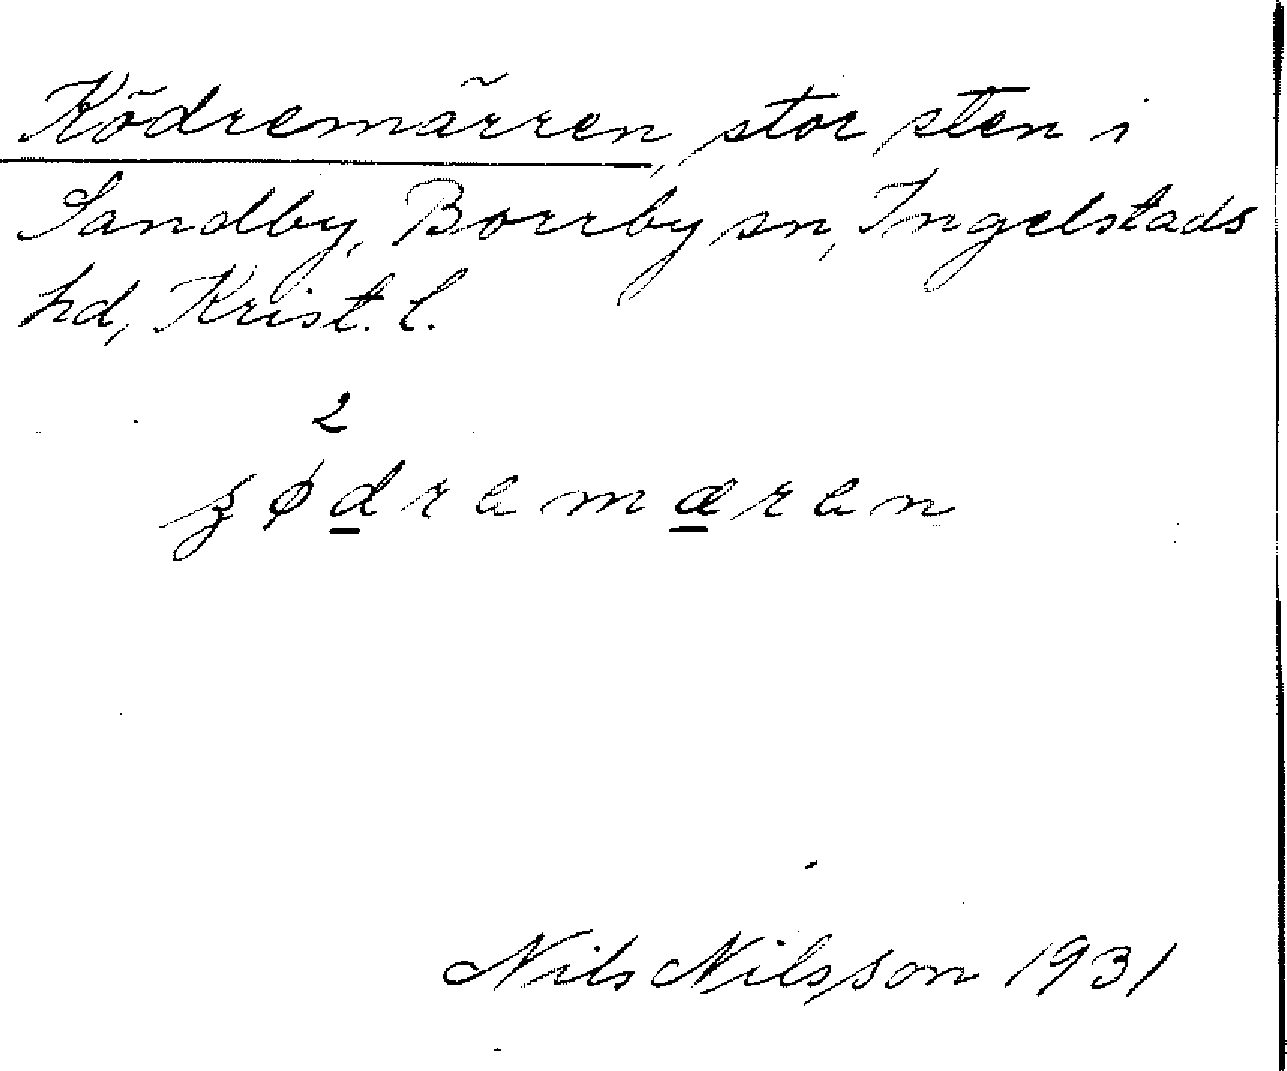 Ködremärren, stor sten i
Sandby, Borrby sn, Ingelstads
hd, Krist. l.
2
ʒødremæren
Nils Nilsson 1931